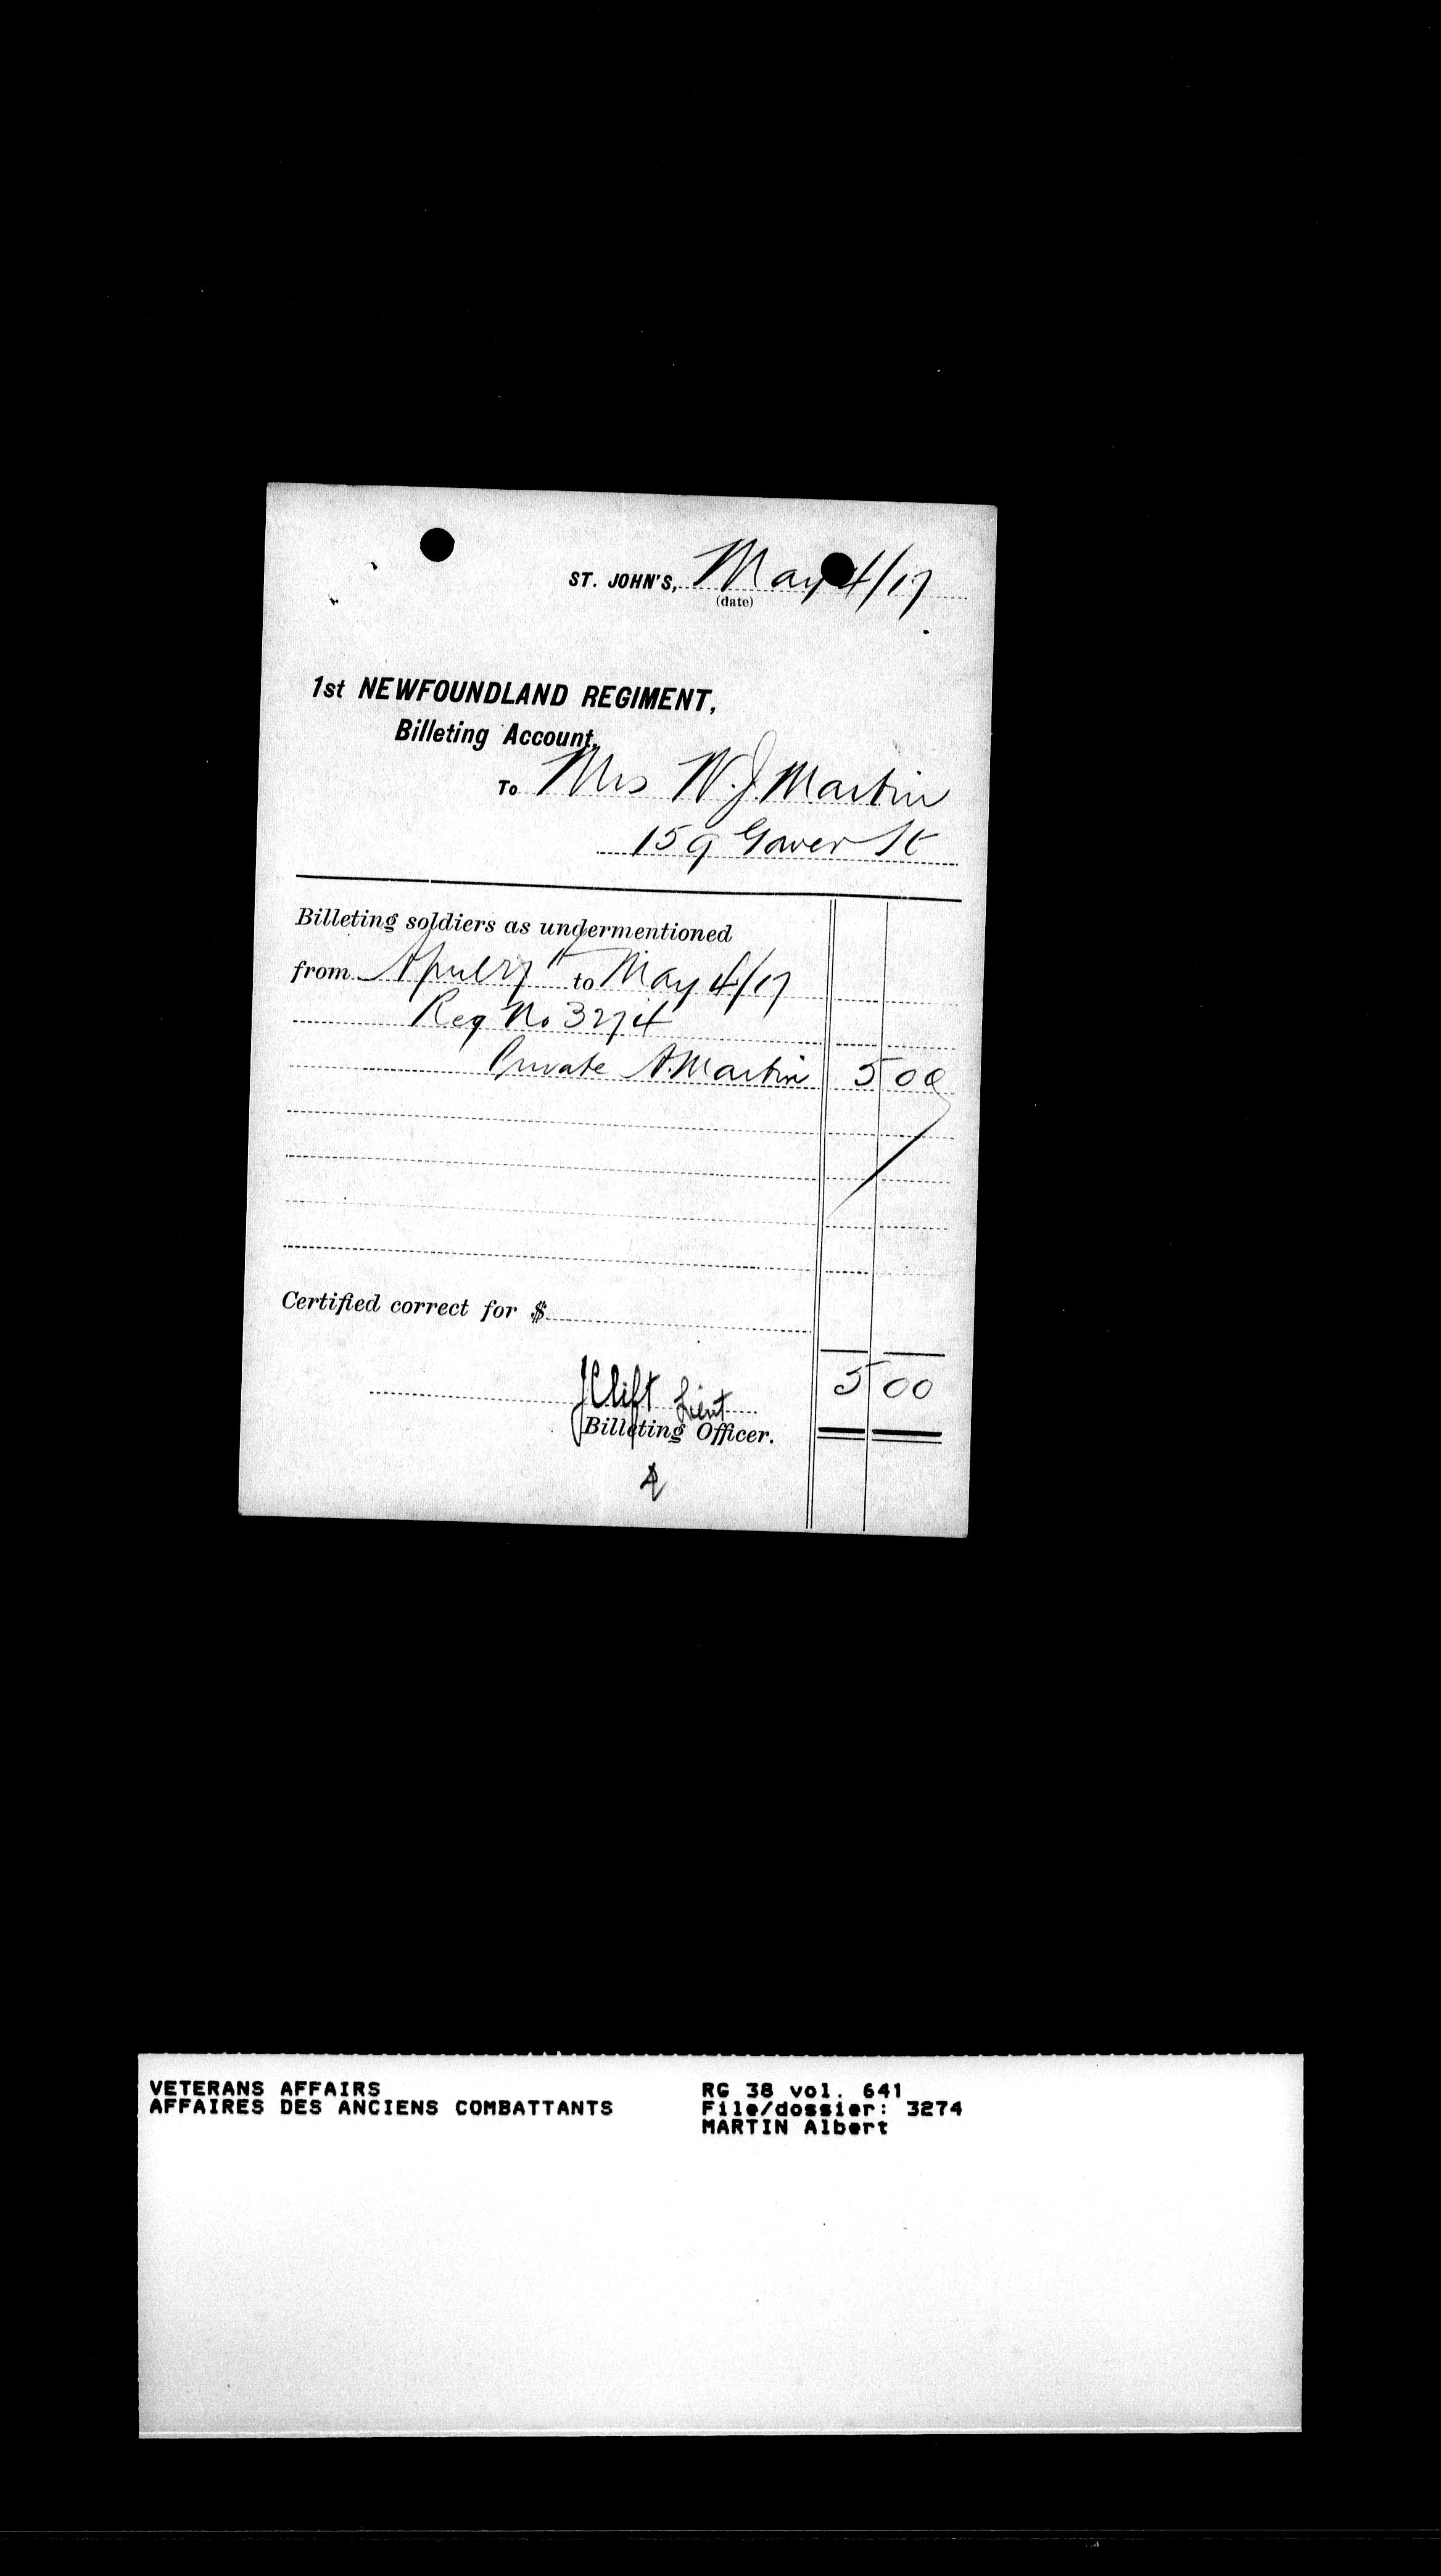 ST. JOHN'S, May 4/17
(date)
1st NEWFOUNDLAND REGIMENT,
Billeting Account,
To Mrs W. J. Martin
159 Gower St
Billeting soldiers as undermentioned
from April 27th to May 4/17
Reg No 3274
Private A. Martin 5 00
Certified correct for $
5 00
J Clift Lieut
Billeting Officer.
VETERANS AFFAIRS
AFFAIRES DES ANCIENS COMBATTANTS
RG 38 vol. 641
File/dossier: 3274
MARTIN Albert